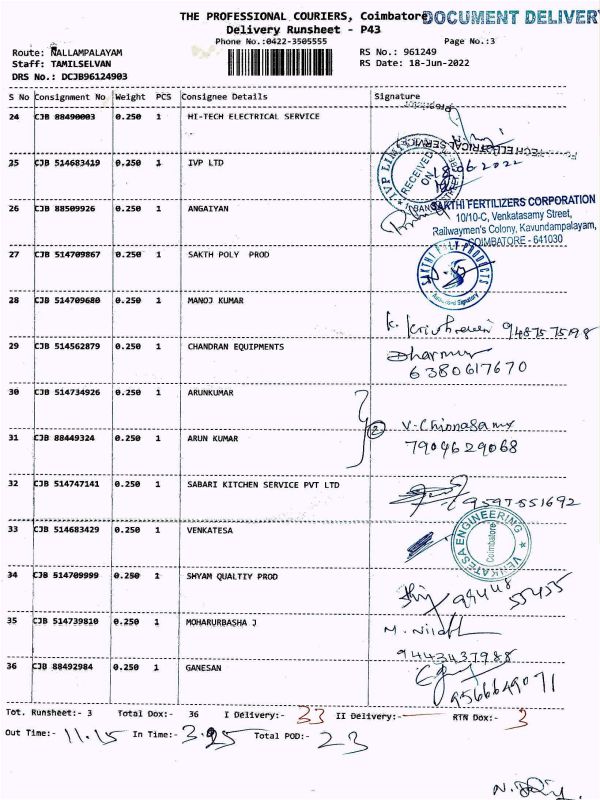 THE PROFESSIONAL COURIERS, Coimbatore DOCUMENT DELIVERY
Delivery Runsheet - P43
Phone No.:0422-3505555 Page No.:3
Route: NALLAMPALAYAM RS No.: 961249
Staff: TAMILSELVAN RS Date: 18-Jun-2022
DRS No.: DCJB96124903
S No Consignment No Weight PCS Consignee Details Signature
24 CJB 88490003 0.250 1 HI-TECH ELECTRICAL SERVICE
For HI-TECH ELECTRICAL SERVICES
Proprietor
25 CJB 514683419 0.250 1 IVP LTD
IVP LIMITED
RECEIVED
ON
18.06.2022
26 CJB 88509926 0.250 1 ANGAIYAN
SAKTHI FERTILIZERS CORPORATION
10/10-C, Venkatasamy Street,
Railwaymen's Colony, Kavundampalayam,
COIMBATORE - 641030
27 CJB 514709867 0.250 1 SAKTH POLY PROD
SAKTHI POLY PRODUCTS
Authorised Signatory
28 CJB 514709680 0.250 1 MANOJ KUMAR
K. 9487575198
29 CJB 514562879 0.250 1 CHANDRAN EQUIPMENTS
6380617670
30 CJB 514734926 0.250 1 ARUNKUMAR
2 V-Chinnasamy
31 CJB 88449324 0.250 1 ARUN KUMAR
7904629068
32 CJB 514747141 0.250 1 SABARI KITCHEN SERVICE PVT LTD
9597551692
33 CJB 514683429 0.250 1 VENKATESA
VENKATESA ENGINEERING
Coimbatore
34 CJB 514709999 0.250 1 SHYAM QUALTIY PROD
99448
55455
35 CJB 514739810 0.250 1 MOHARURBASHA J
M.
9443437988
36 CJB 88492984 0.250 1 GANESAN
9566649071
Tot. Runsheet:- 3 Total Dox:- 36 I Delivery:- 33 II Delivery:- RTN Dox:- 3
Out Time:- 11.15 In Time:- 3.25 Total POD:- 23